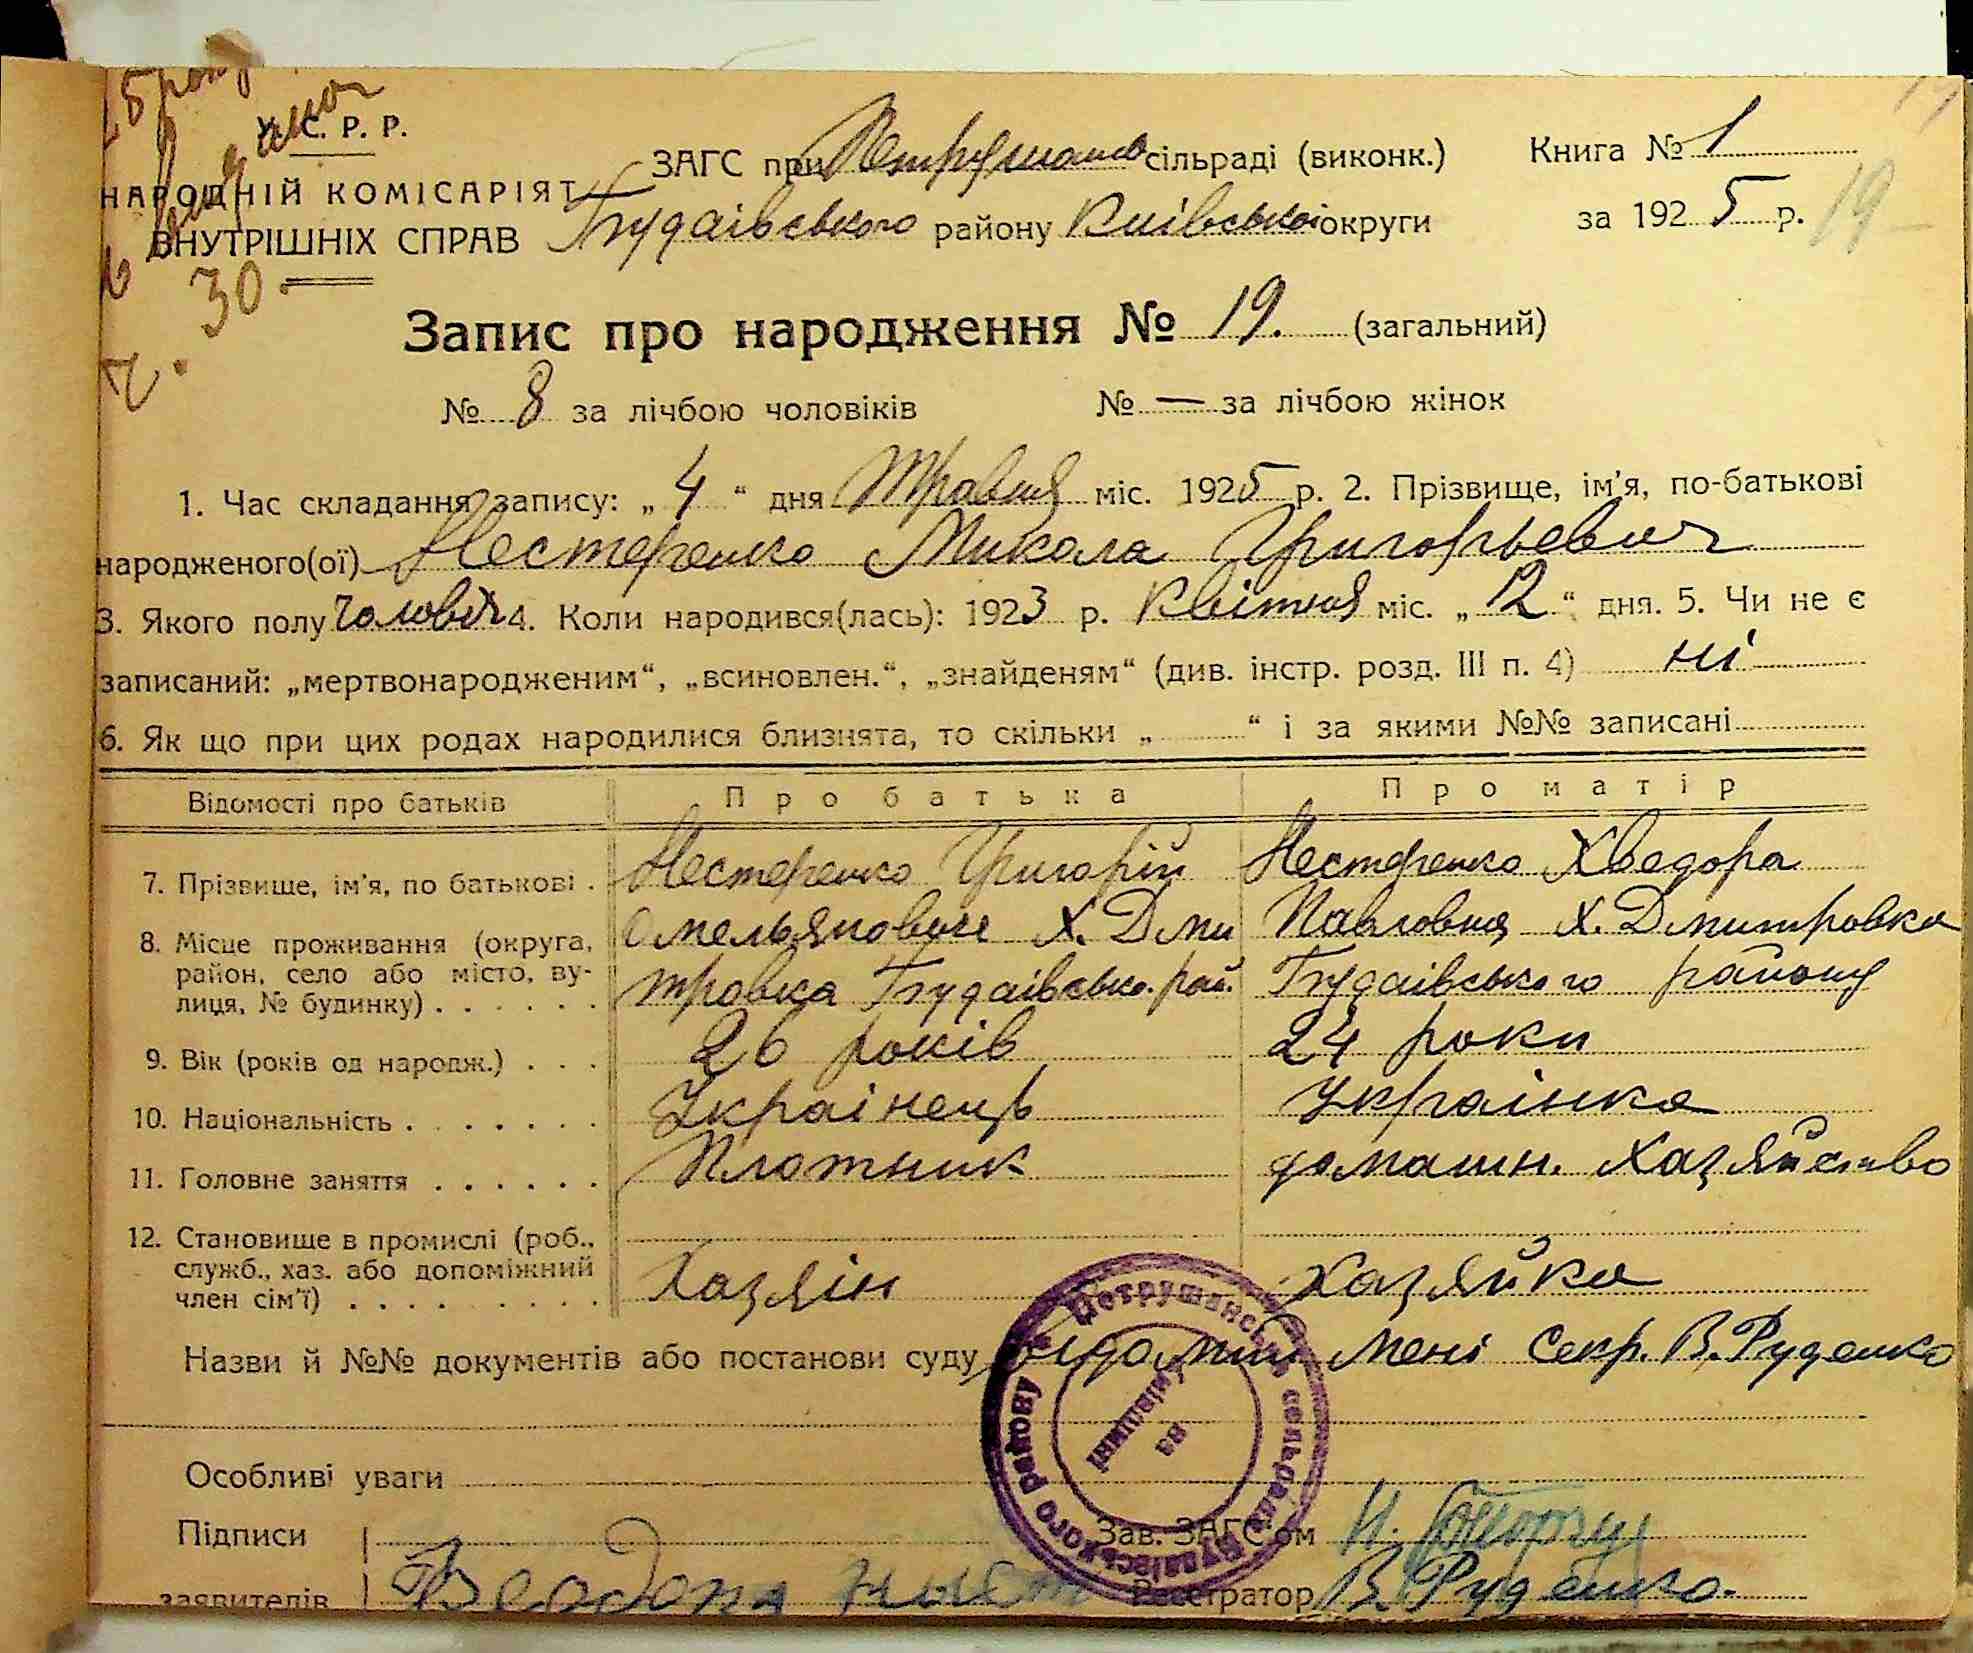 У. С. Р. Р.
НАРОДНІЙ КОМІСАРІЯТ
ВНУТРІШНІХ СПРАВ
30.
ЗАГС при сільраді (виконк.)
Будаівського району Київської округи
Книга № 1
за 1925 р.
19
Запис про народження № 19. (загальний)
№ 8 за лічбою чоловіків № — за лічбою жінок
1. Час складання запису: „ 4 “ дня Травня міс. 1925 р. 2. Прізвище, ім'я, по-батькові
народженого(ої) Нестеренко Микола Григорьевич
3. Якого полу чоловіч 4. Коли народився(лась): 1923 р. Квітня міс. „ 12 “ дня. 5. Чи не є
записаний: „мертвонародженим“, „всиновлен.“, „знайденям“ (див. інстр. розд. III п. 4) ні
6. Як що при цих родах народилися близнята, то скільки „ “ і за якими №№ записані
Відомості про батьків Про батька Про матір
7. Прізвище, ім'я, по батькові . Нестеренко Григорій Нестеренко Хведора
8. Місце проживання (округа, Омельянович Х. Дми Павловна Х. Дмитровка
район, село або місто, ву- тровка Будаівсько. рай. Будаівського району
лиця, № будинку) . . . . . .
9. Вік (років од народж.) . . . 26 років 24 роки
10. Національність . . . . . . . Українець Українка
11. Головне заняття . . . . . . Плотник домашн. Хазяйство
12. Становище в промислі (роб.,
служб., хаз. або допоміжний Хазяін Хазяйка
член сім'ї) . . . . . . . . .
Назви й №№ документів або постанови суду Відомий мені Секр. В. Руденко
Петрушанська сельрада Будаівського району
на Київщині
Особливі уваги
Підписи Зав. ЗАГС'ом
заявителів Реєстратор В. Руденко.